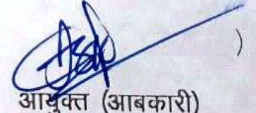 )
आयुक्त (आबकारी)